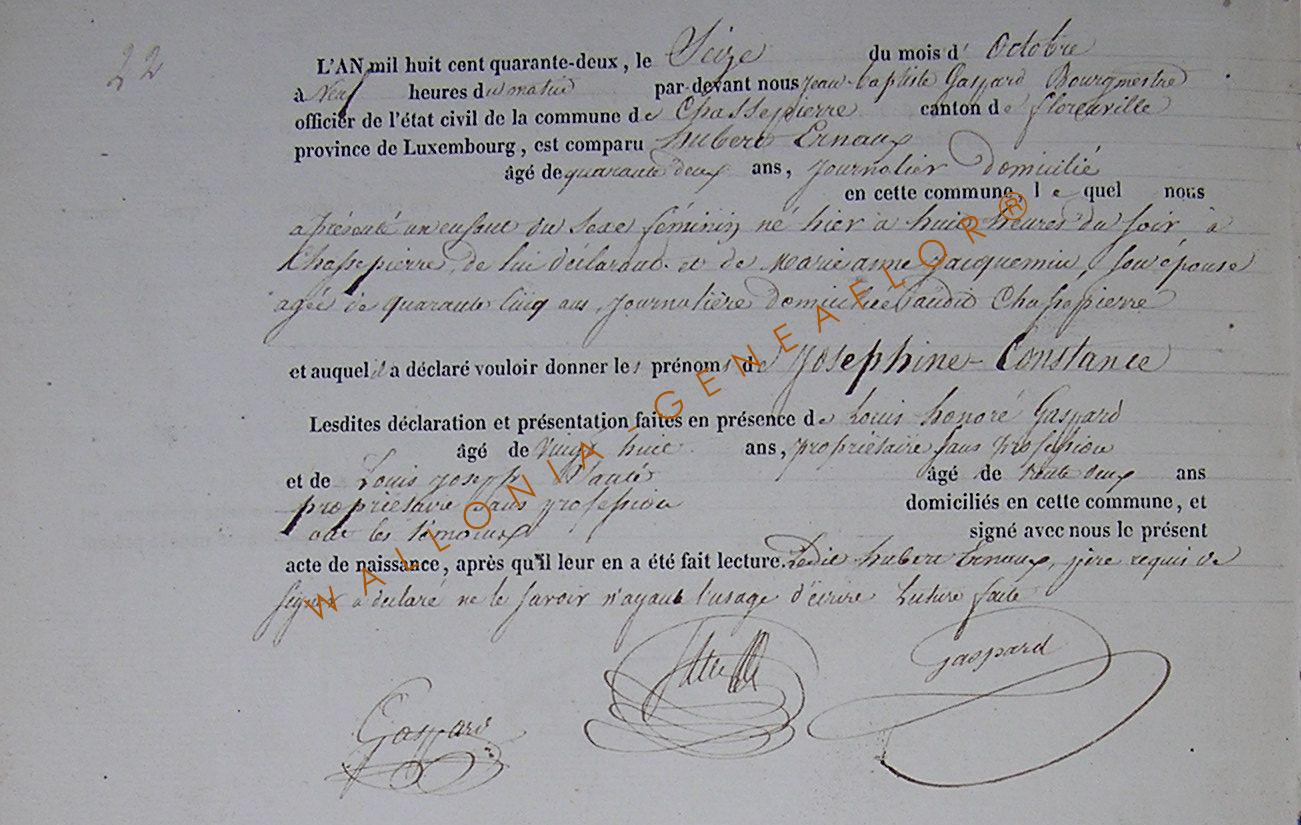 22
L'AN mil huit cent quarante-deux, le Seize du mois d' Octobre
à Neuf heures du matin par-devant nous Jean-baptiste Gaspard Bourgmestre
officier de l'état civil de la commune de Chassepierre canton de florenville
province de Luxembourg, est comparu hubert Ernaux
âgé de quarante deux ans, journalier domicilié
en cette commune, le quel nous
a présenté un enfant du sexe féminin né hier à huit heures du soir à
Chassepierre, de lui déclarant et de Marie anne jacquemin, son épouse
agée de quarante cinq ans, journalière domiciliée audit Chassepierre
et auquel il a déclaré vouloir donner les prénoms de Josephine-Constance
Lesdites déclaration et présentation faites en présence de Louis honoré Gaspard
âgé de vingt huit ans, propriétaire sans profession
et de Louis joseph âgé de trente deux ans
propriétaire sans profession domiciliés en cette commune, et
ont les témoins signé avec nous le présent
acte de naissance, après qu'il leur en a été fait lecture. Ledit hubert Ernaux, père requis de
signer a déclaré ne le savoir n'ayant l'usage d'écrire Lecture faite
Gaspard
Gaspard
WALLONIA-GENEAFLOR®